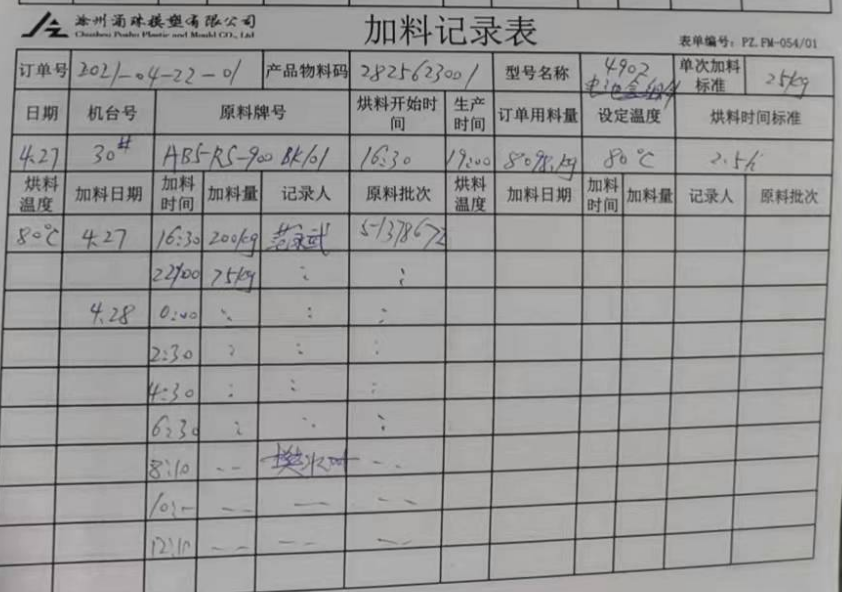 滁州涌珠模塑有限公司
加料记录表
表单编号: PZ.FM-054/01
订单号 2021-04-22-01 产品物料码 2825623001 型号名称 4902 单次加料标准 25kg
日期 机台号 原料牌号 烘料开始时间 生产时间 订单用料量 设定温度 烘料时间标准
4.27 30# ABS-RS-900 BK101 16:30 19:00 80℃ 2.5h
烘料温度 加料日期 加料时间 加料量 记录人 原料批次 烘料温度 加料日期 加料时间 加料量 记录人 原料批次
80℃ 4.27 16:30 200kg 5-1378672
22:00 75kg
4.28 0:00
2:30
4:30
6:30
8:10
12:10